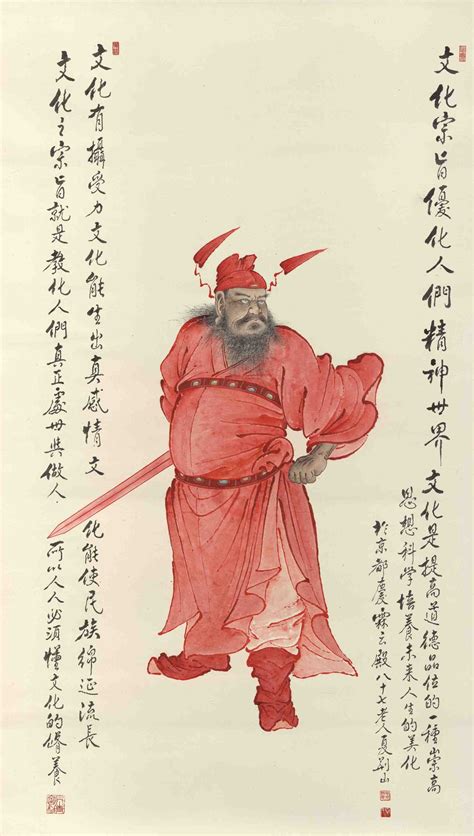 文化宗旨優化人們精神世界 文化是提高道德品位的一種崇高
思想科学培養未来人生的美化
於京都慶霖云殿八十七老人夏荆山
文化有攝受力文化能生出真感情文 化能使民族綿延流長
文化之宗旨就是教化人們真正處世與做人 所以人人必須懂文化的脩養